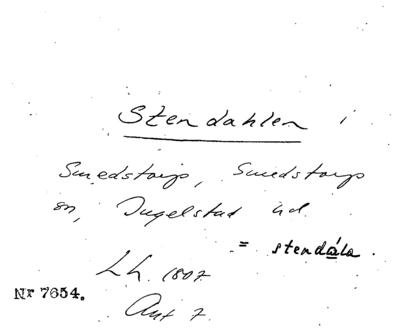 Stendahlen i
Smedstorps, Smedstorps
sn, Ingelstad hd.
= stendåla.
Lh. 1807.
Nr 7654.
Ant 7.